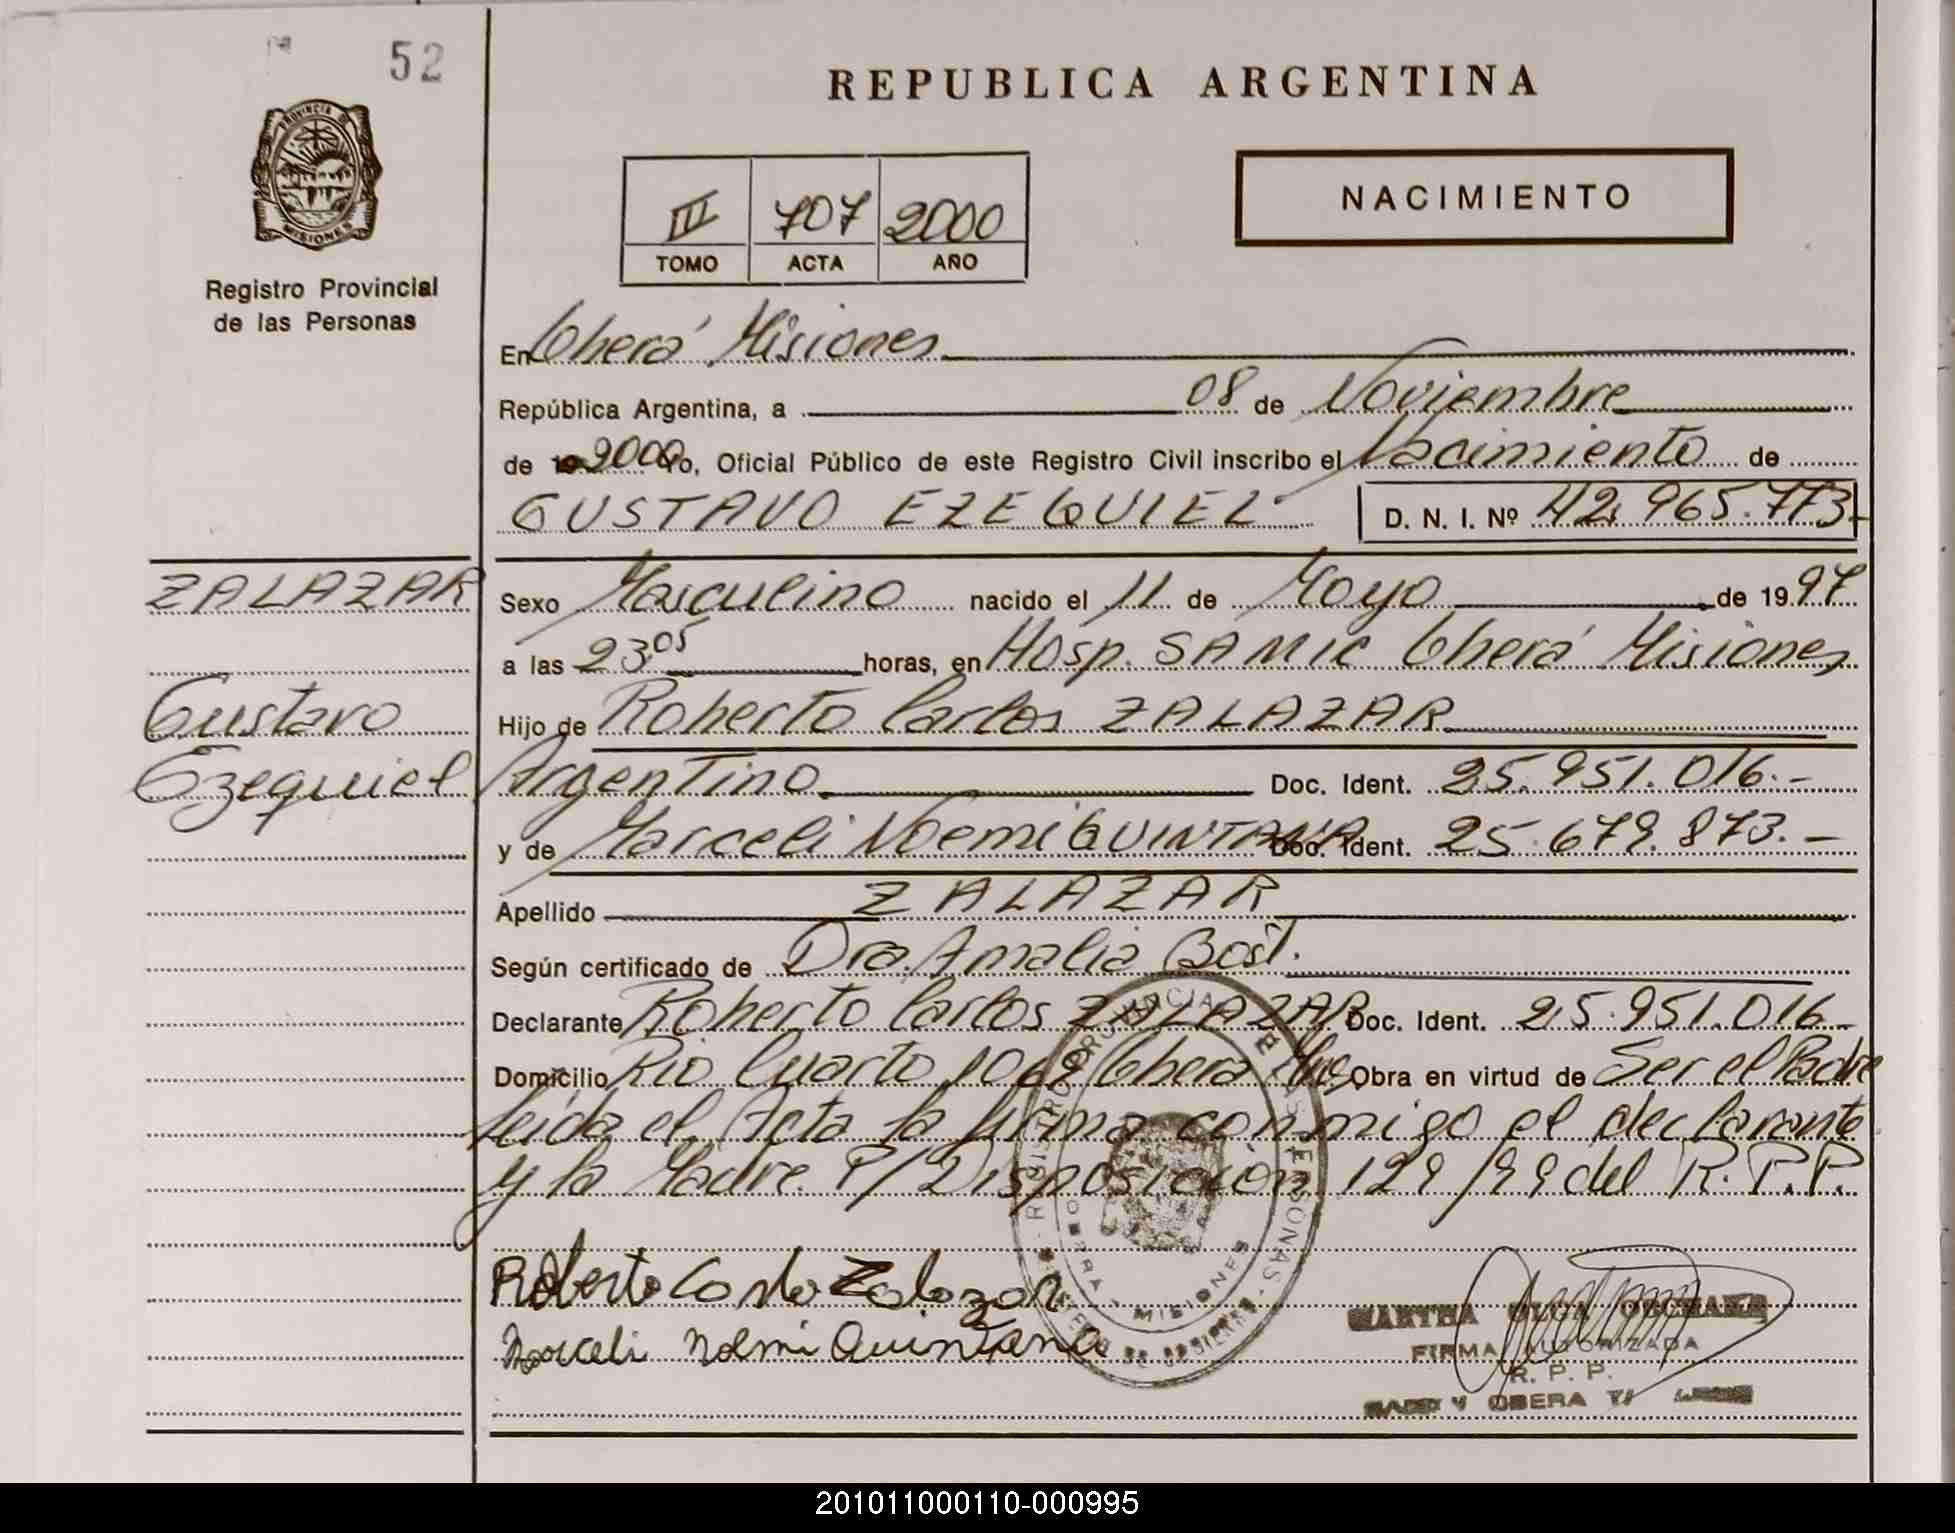 52
PROVINCIA DE
MISIONES
Registro Provincial
de las Personas
REPUBLICA ARGENTINA
NACIMIENTO
III 707 2000
TOMO ACTA AÑO
En Oberá Misiones
República Argentina, a 08 de Noviembre
de 2000 Yo, Oficial Público de este Registro Civil inscribo el Nacimiento de
GUSTAVO EZEQUIEL D. N. I. Nº 42.965.773.-
ZALAZAR
Gustavo
Ezequiel
Sexo Masculino nacido el 11 de Mayo de 1997
a las 23,05 horas, en Hosp. SAMIC Oberá Misiones
Hijo de Roberto Carlos ZALAZAR
Argentino Doc. Ident. 25.951.016.-
y de Marceli Noemi QUINTANA Doc. Ident. 25.679.873.-
Apellido ZALAZAR
Según certificado de Dra. Amalia
Declarante Roberto Carlos ZALAZAR Doc. Ident. 25.951.016-
Domicilio Rio Cuarto Oberá Mnes Obra en virtud de Ser el Padre
Leída el Acta la firma conmigo el declarante
y la Madre P/Disposición 129/99 del R.P.P.
Roberto Carlos Zalazar
Marceli Noemi Quintana
MARTHA OLGA
FIRMA AUTORIZADA
R. P. P.
OBERA
201011000110-000995